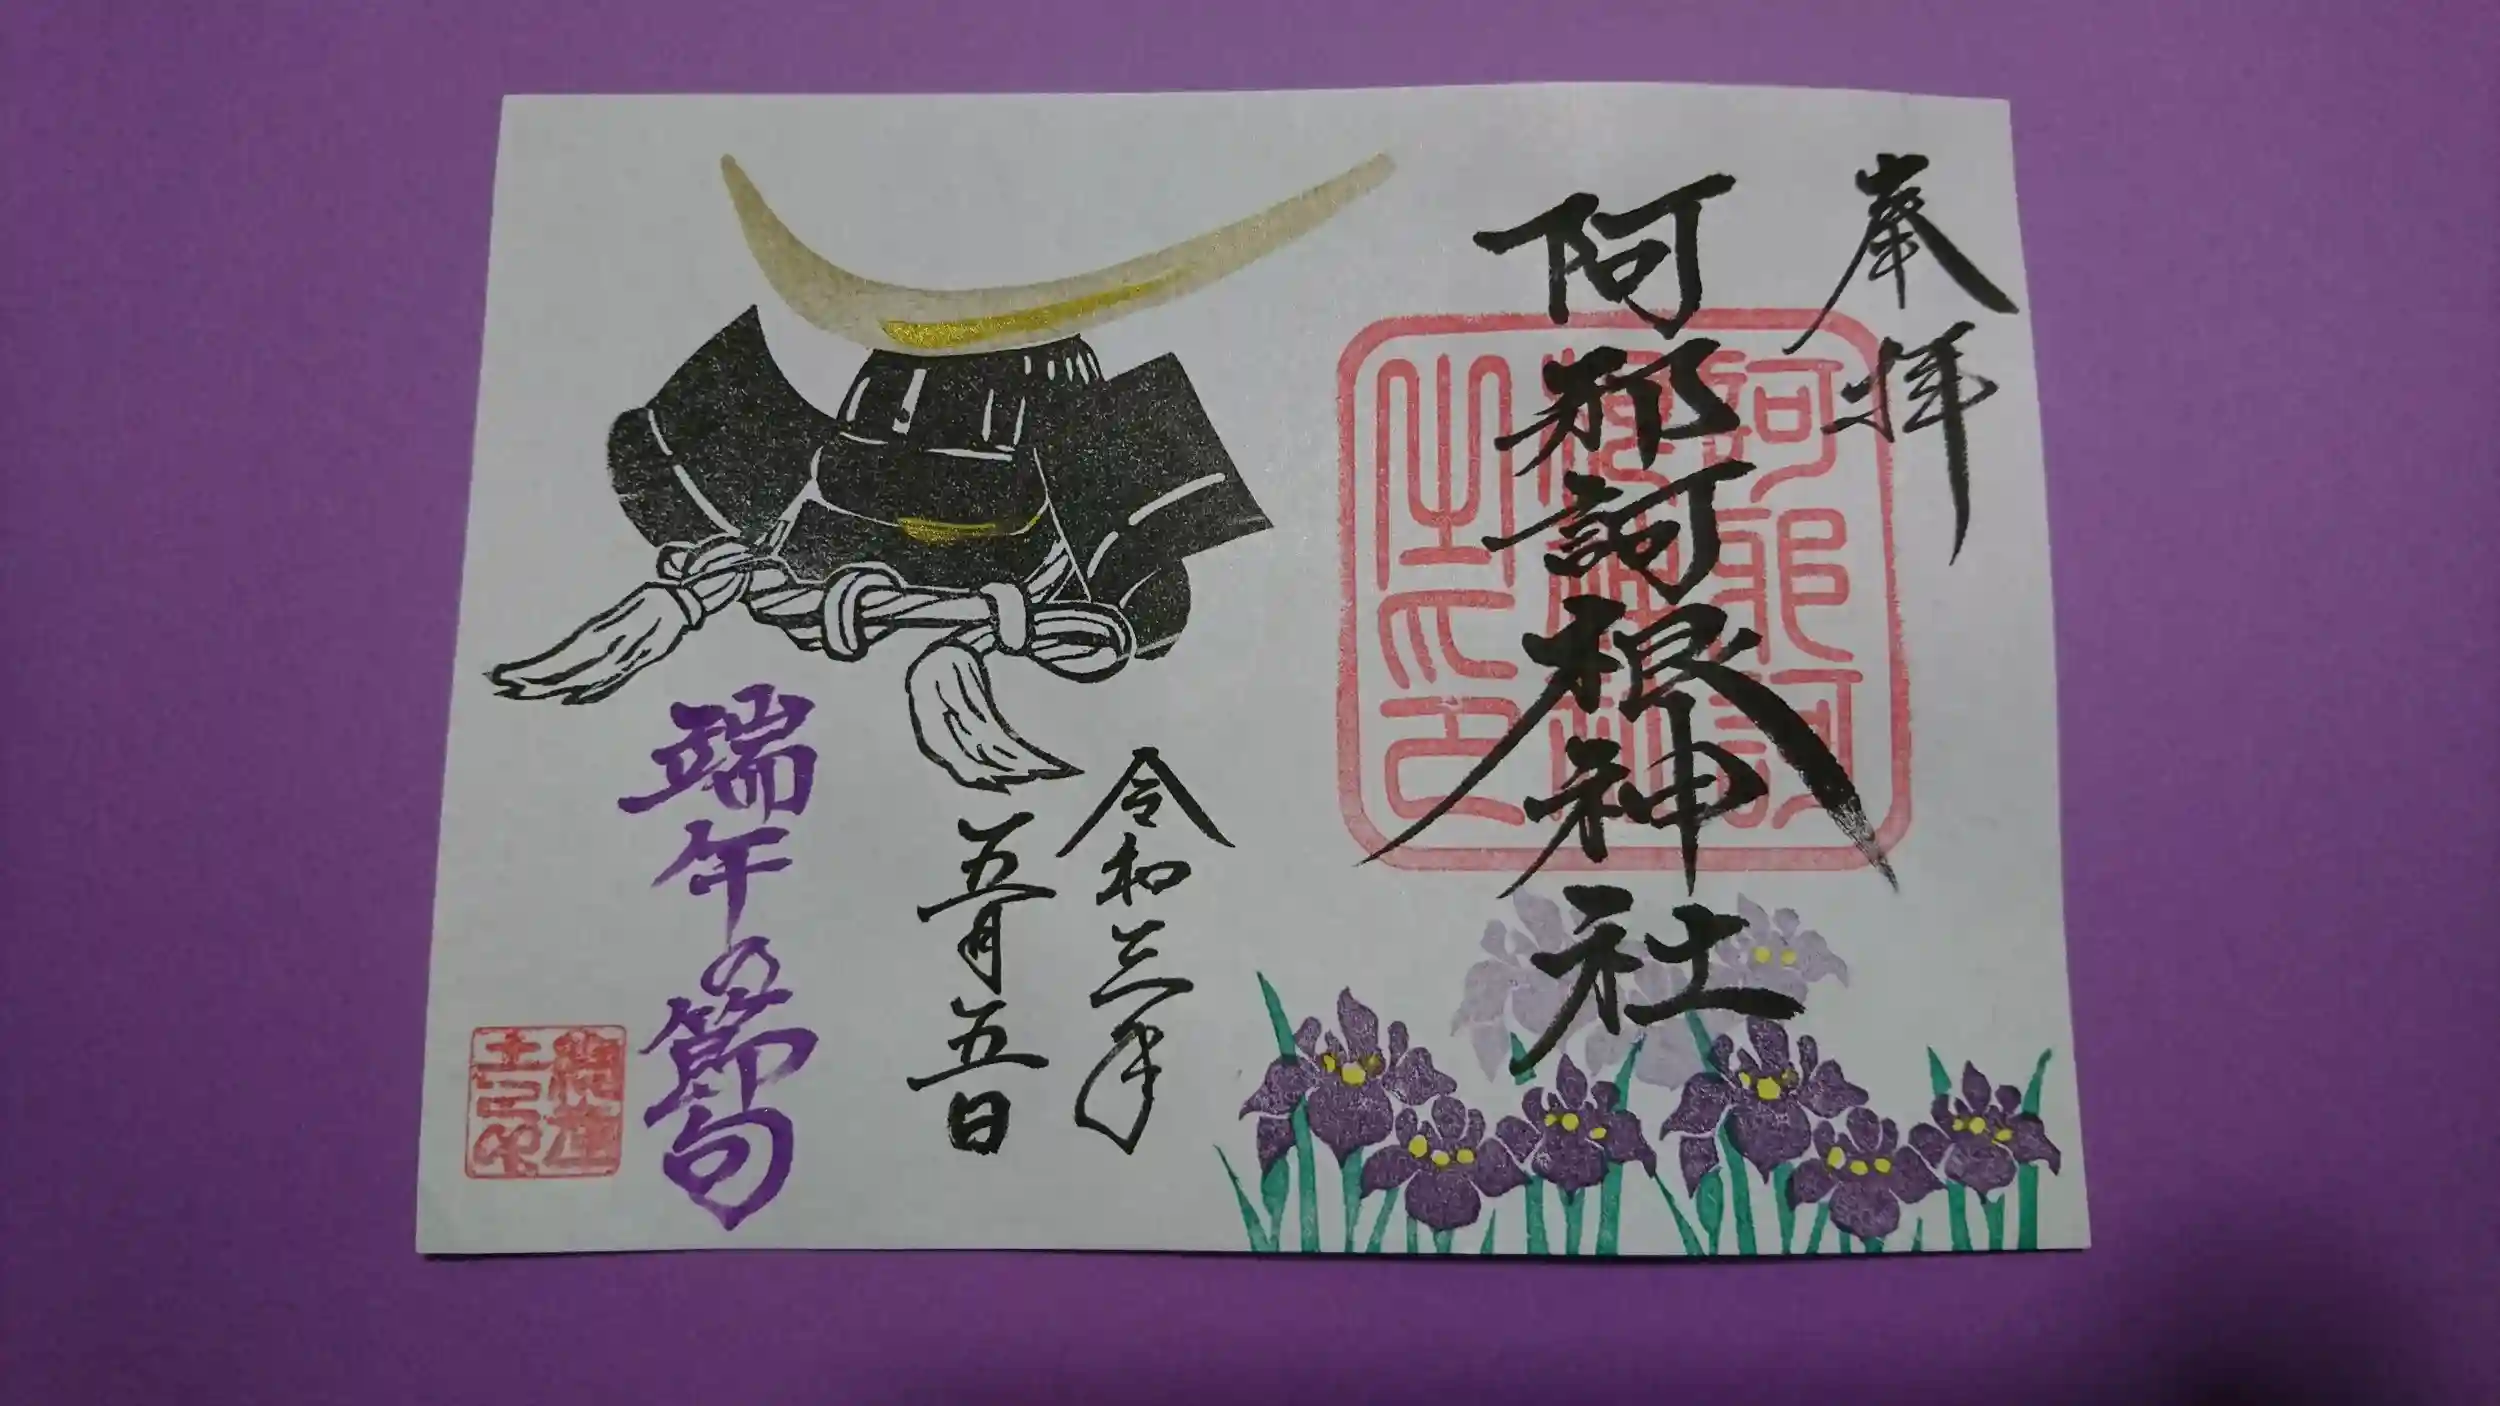 奉拝
阿邪訶根神社
阿邪訶
根神社
之印
令和三年
五月五日
端午の節句